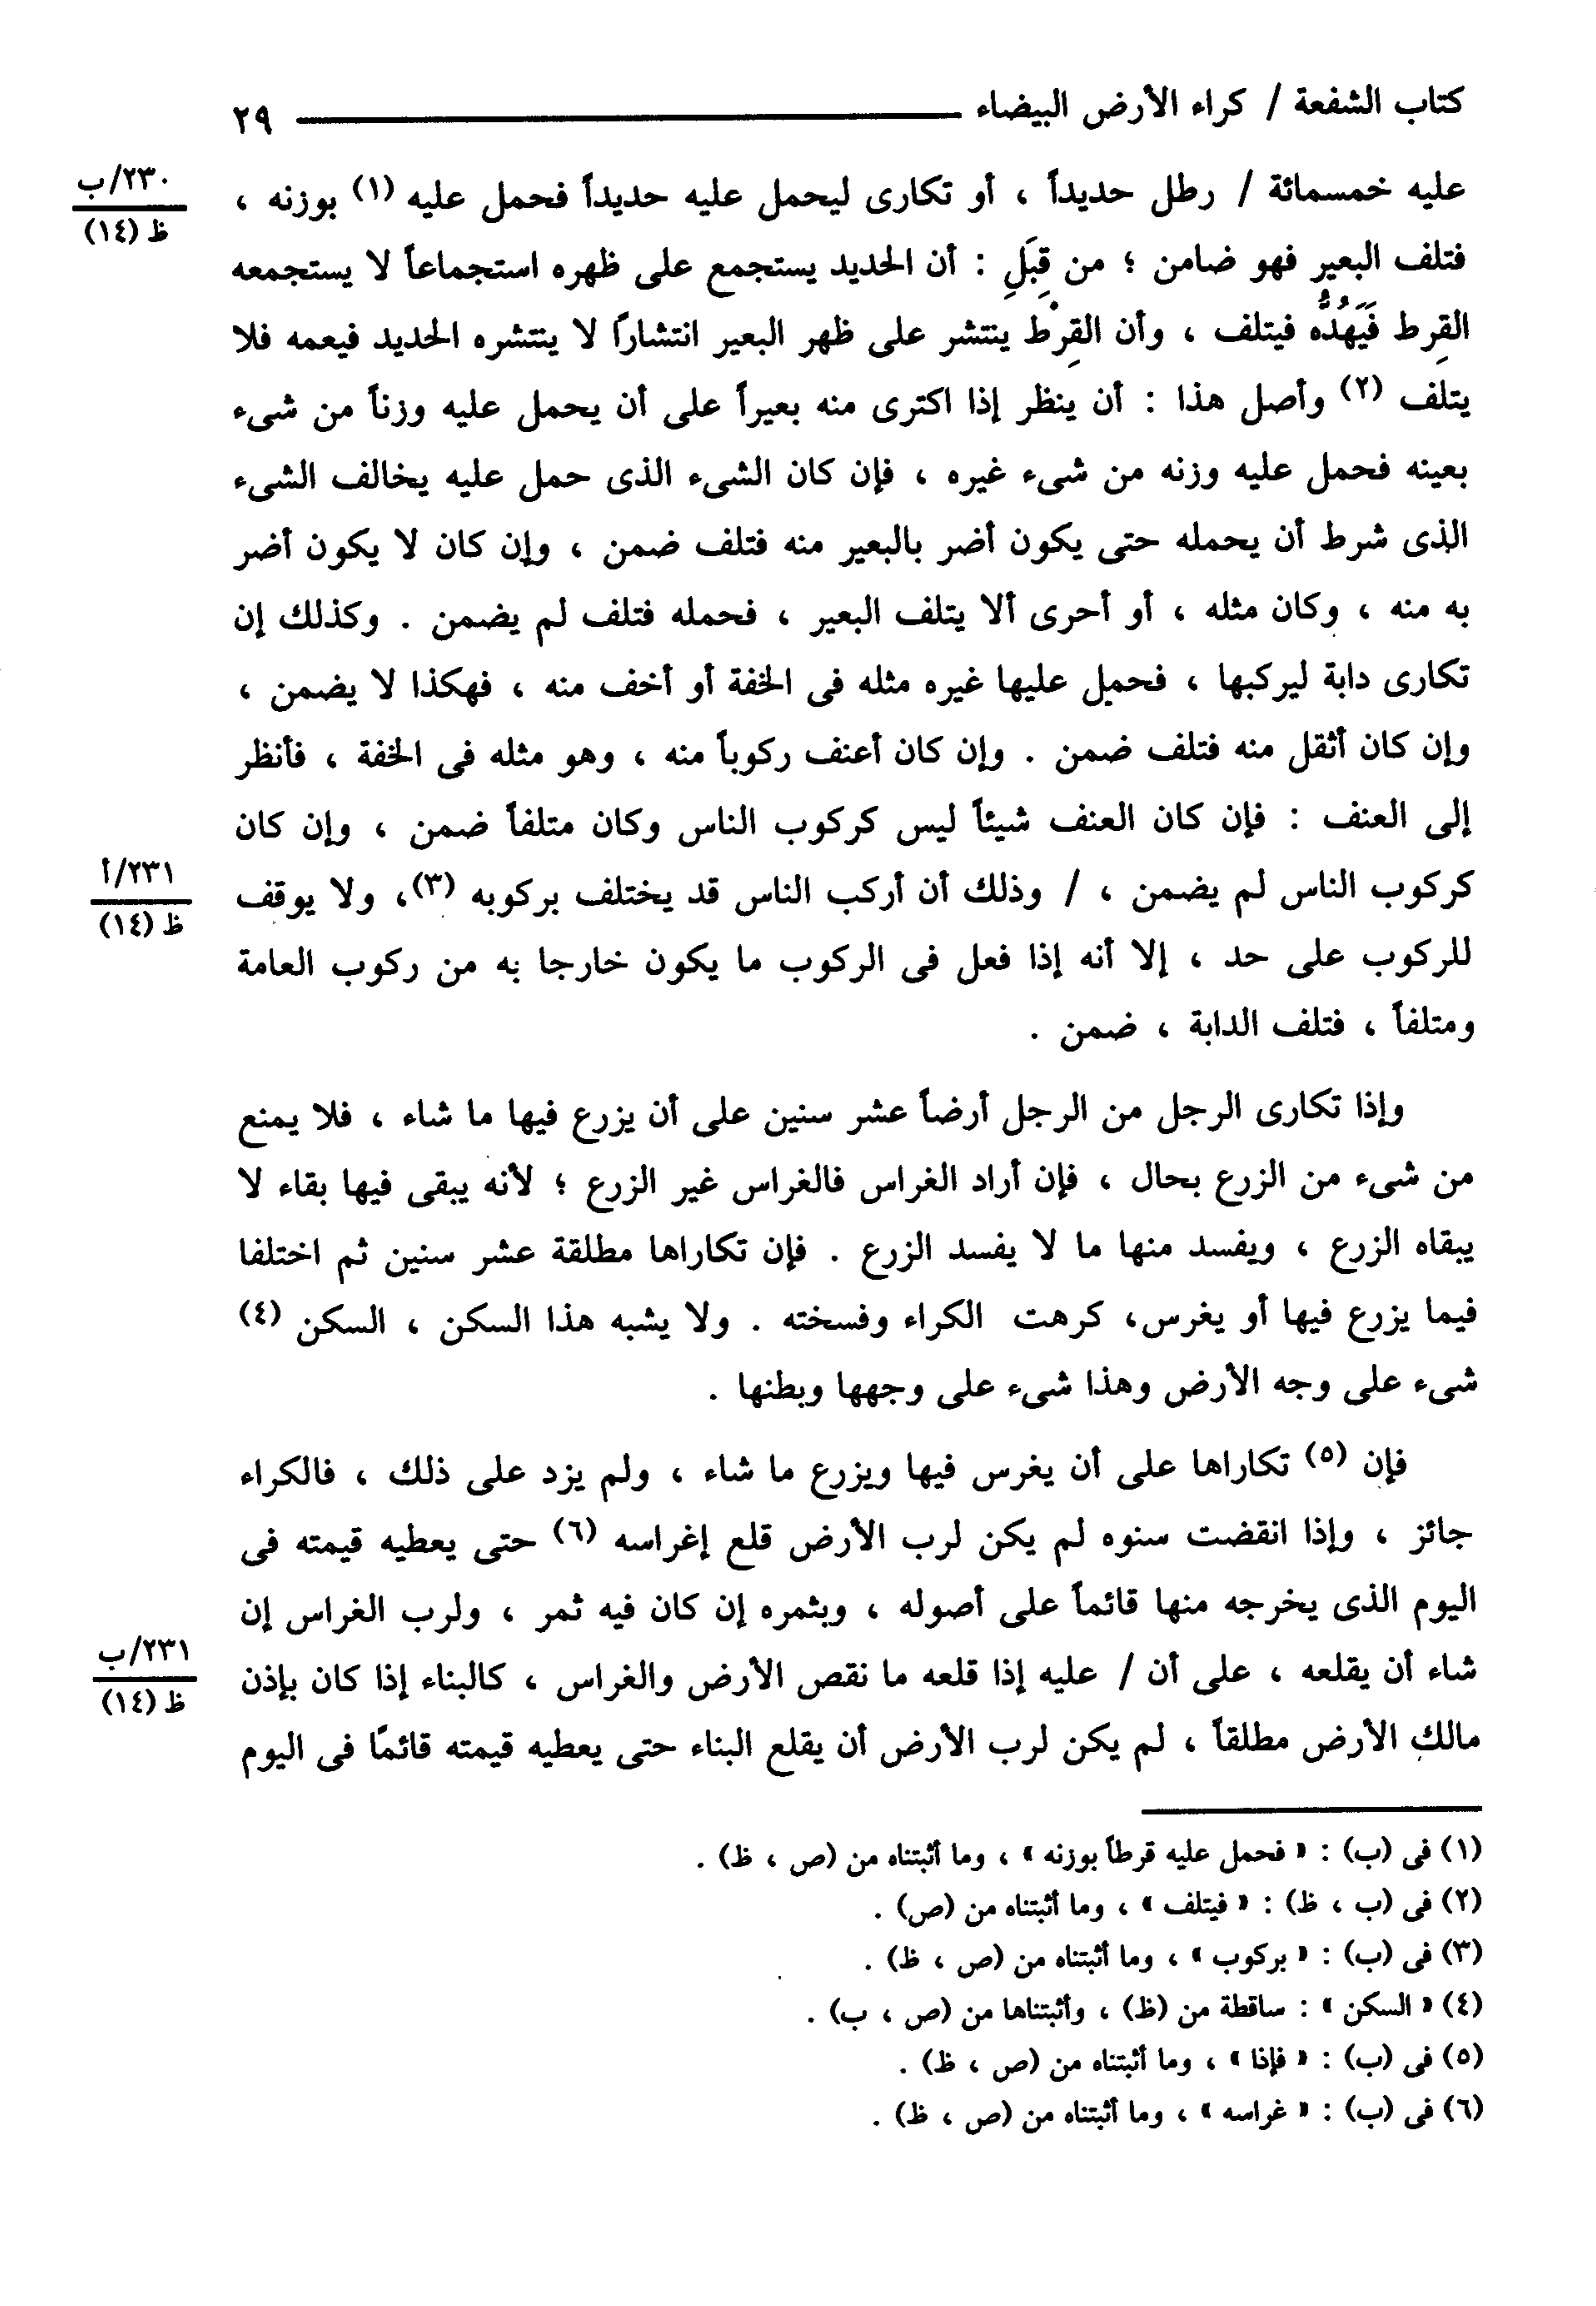 كتاب الشفعة / كراء الأرض البيضاء ٢٩
عليه خمسمائة / رطل حديداً ، أو تكارى ليحمل عليه حديداً فحمل عليه (١) بوزنه ،
٢٣٠/ب
ظ (١٤)
فتلف البعير فهو ضامن ؛ من قِبَلِ : أن الحديد يستجمع على ظهره استجماعاً لا يستجمعه
القِرط فَيَهُدُّه فيتلف ، وأن القِرْط ينتشر على ظهر البعير انتشارًا لا ينتشره الحديد فيعمه فلا
يتلف (٢) وأصل هذا : أن ينظر إذا اكترى منه بعيراً على أن يحمل عليه وزناً من شىء
بعينه فحمل عليه وزنه من شىء غيره ، فإن كان الشىء الذى حمل عليه يخالف الشىء
الذى شرط أن يحمله حتى يكون أضر بالبعير منه فتلف ضمن ، وإن كان لا يكون أضر
به منه ، وكان مثله ، أو أحرى ألا يتلف البعير ، فحمله فتلف لم يضمن . وكذلك إن
تكارى دابة ليركبها ، فحمل عليها غيره مثله فى الخفة أو أخف منه ، فهكذا لا يضمن ،
وإن كان أثقل منه فتلف ضمن . وإن كان أعنف ركوباً منه ، وهو مثله فى الخفة ، فأنظر
إلى العنف : فإن كان العنف شيئاً ليس كركوب الناس وكان متلفاً ضمن ، وإن كان
كركوب الناس لم يضمن ، / وذلك أن أركب الناس قد يختلف بركوبه (٣)، ولا يوقف
٢٣١/أ
ظ (١٤)
للركوب على حد ، إلا أنه إذا فعل فى الركوب ما يكون خارجا به من ركوب العامة
ومتلفاً ، فتلف الدابة ، ضمن .
وإذا تكارى الرجل من الرجل أرضاً عشر سنين على أن يزرع فيها ما شاء ، فلا يمنع
من شىء من الزرع بحال ، فإن أراد الغراس فالغراس غير الزرع ؛ لأنه يبقى فيها بقاء لا
يبقاه الزرع ، ويفسد منها ما لا يفسد الزرع . فإن تكاراها مطلقة عشر سنين ثم اختلفا
فيما يزرع فيها أو يغرس، كرهت الكراء وفسخته . ولا يشبه هذا السكن ، السكن (٤)
شىء على وجه الأرض وهذا شىء على وجهها وبطنها .
فإن (٥) تكاراها على أن يغرس فيها ويزرع ما شاء ، ولم يزد على ذلك ، فالكراء
جائز ، وإذا انقضت سنوه لم يكن لرب الأرض قلع إغراسه (٦) حتى يعطيه قيمته فى
اليوم الذى يخرجه منها قائماً على أصوله ، وبثمره إن كان فيه ثمر ، ولرب الغراس إن
شاء أن يقلعه ، على أن / عليه إذا قلعه ما نقص الأرض والغراس ، كالبناء إذا كان بإذن
٢٣١/ب
ظ (١٤)
مالك الأرض مطلقاً ، لم يكن لرب الأرض أن يقلع البناء حتى يعطيه قيمته قائمًا فى اليوم
(١) فى (ب) : « فحمل عليه قرطاً بوزنه » ، وما أثبتناه من (ص ، ظ) .
(٢) فى (ب ، ظ) : « فيتلف » ، وما أثبتناه من (ص) .
(٣) فى (ب) : « بركوب » ، وما أثبتناه من (ص ، ظ) .
(٤) « السكن » : ساقطة من (ظ) ، وأثبتناها من (ص ، ب) .
(٥) فى (ب) : « فإذا » ، وما أثبتناه من (ص ، ظ) .
(٦) فى (ب) : « غراسه » ، وما أثبتناه من (ص ، ظ) .